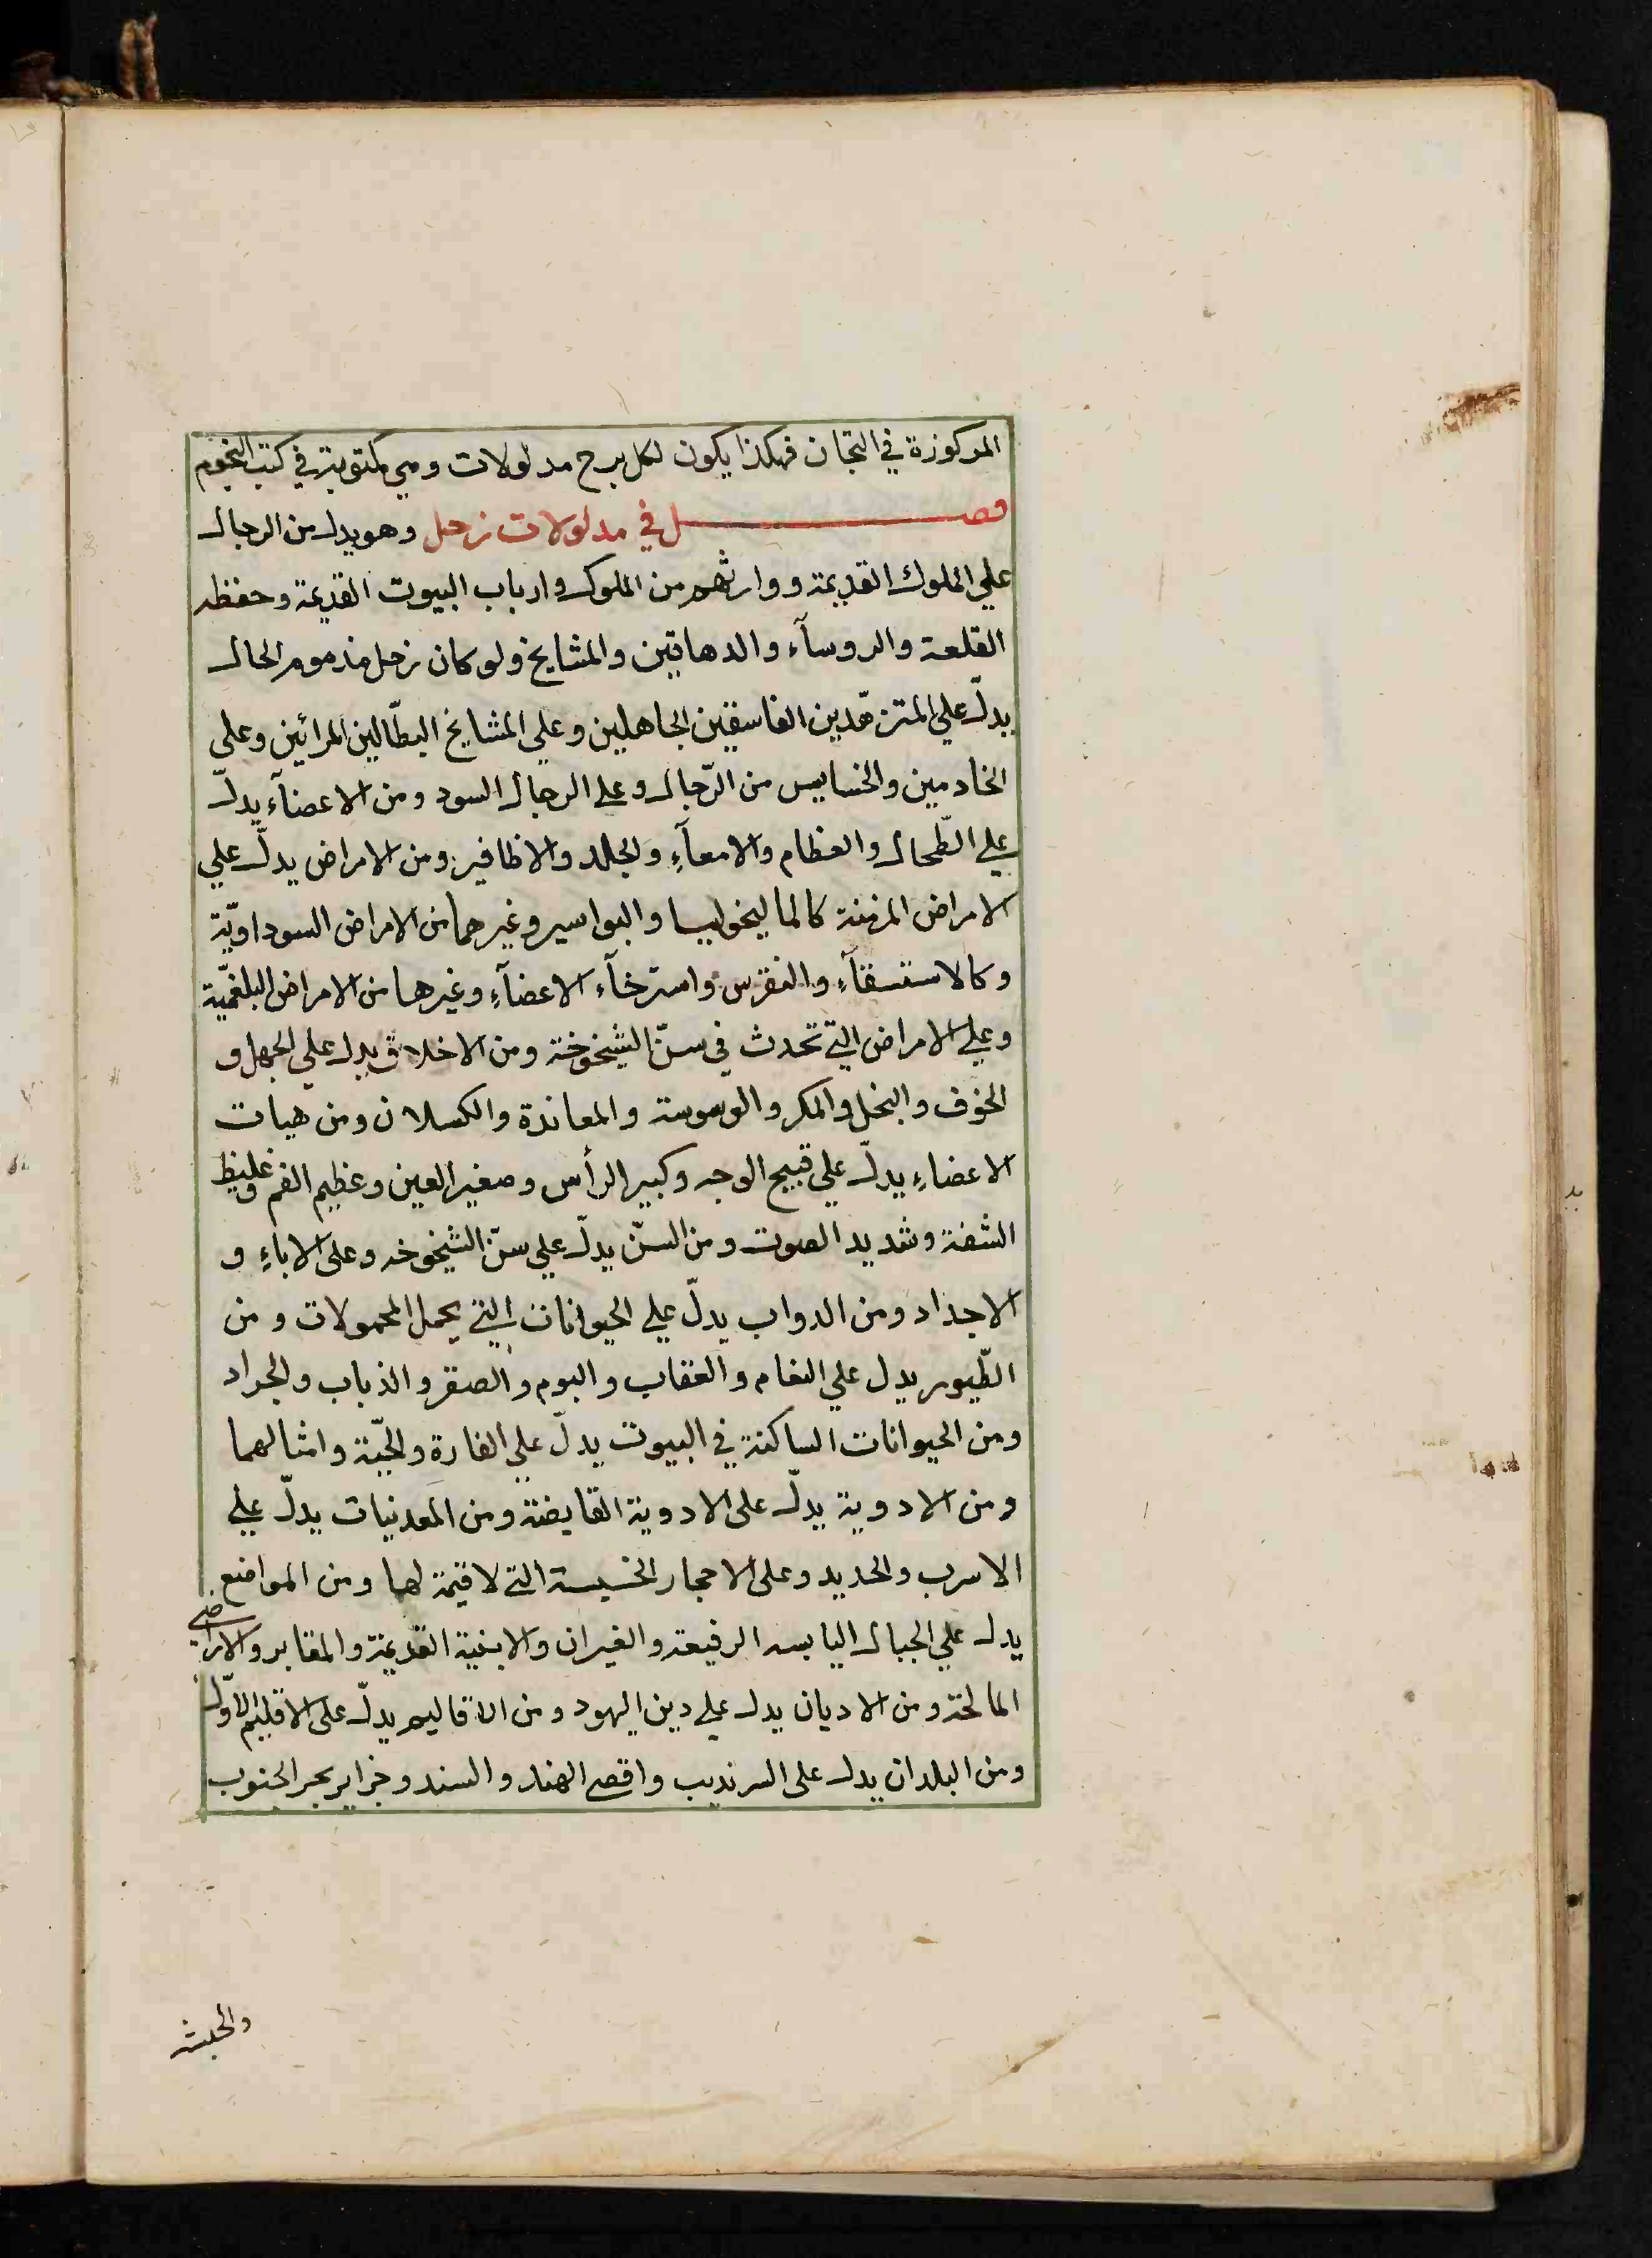 المركوزة في التجان فهكذا يكون لكل برج مدلولات وهي مكتوبة في كتب النجوم
فصل في مدلولات زحل وهو يدل من الرجال
علي الملوك القديمة ووارثهم من الملوك وارباب البيوت القديمة وحفظه
القلعة والروسآء والدهاقين والمشايخ ولو كان زحل مذموم الحال
يدلّ علي المتزهّدين الفاسقين الجاهلين وعلي المشايخ البطّالين المرائين وعلى
الخادمين والخسايس من الرّجال وعلي الرجال السود ومن الاعضآء يدلّ
علي الطّحال والعظام والامعآءِ والجلد والاظافير ومن الامراض يدلّ علي
الامراض المزمنة كالماليخوليا والبواسير وغيرهما من الامراض السوداويّة
وكالاستسقآءِ والنقرس واسترخآء الاعضآءِ وغيرها من الامراض البلغميّة
وعلي الامراض التي تحدث في سنّ الشيخوخة ومن الاخلاق يدل علي الجهل و
الخوف والبخل والمكر والوسوسة والمعاندة والكسلان ومن هيات
الاعضاءِ يدلّ علي قبيح الوجه وكبير الرأس وصغير العين وعظيم الفم وغليظ
الشفة وشديد الصوت ومن السنّ يدلّ علي سنّ الشيخوخه وعلى الاباءِ و
الاجداد ومن الدواب يدلّ علي الحيوانات التي يحمل المحمولات ومن
الطّيور يدل علي النعام والعقاب والبوم والصقر والذباب والجراد
ومن الحيوانات الساكنة في البيوت يدلّ علي الفارة والحيّة وامثالهما
ومن الادوية يدلّ على الادوية القابضة ومن المعدنيات يدلّ علي
الاسرب والحديد وعلى الاحجار الخسيسة التي لا قيمة لها ومن المواضع
يدل علي الجبال اليابسه الرفيعة والغيران والابنية القديمة والمقابر والاراضي
المالحة ومن الاديان يدل علي دين اليهود ومن الاقاليم يدلّ على الاقليم الاوّل
ومن البلدان يدل على السرنديب واقصي الهند والسند وجزاير بحر الجنوب
والحبشه